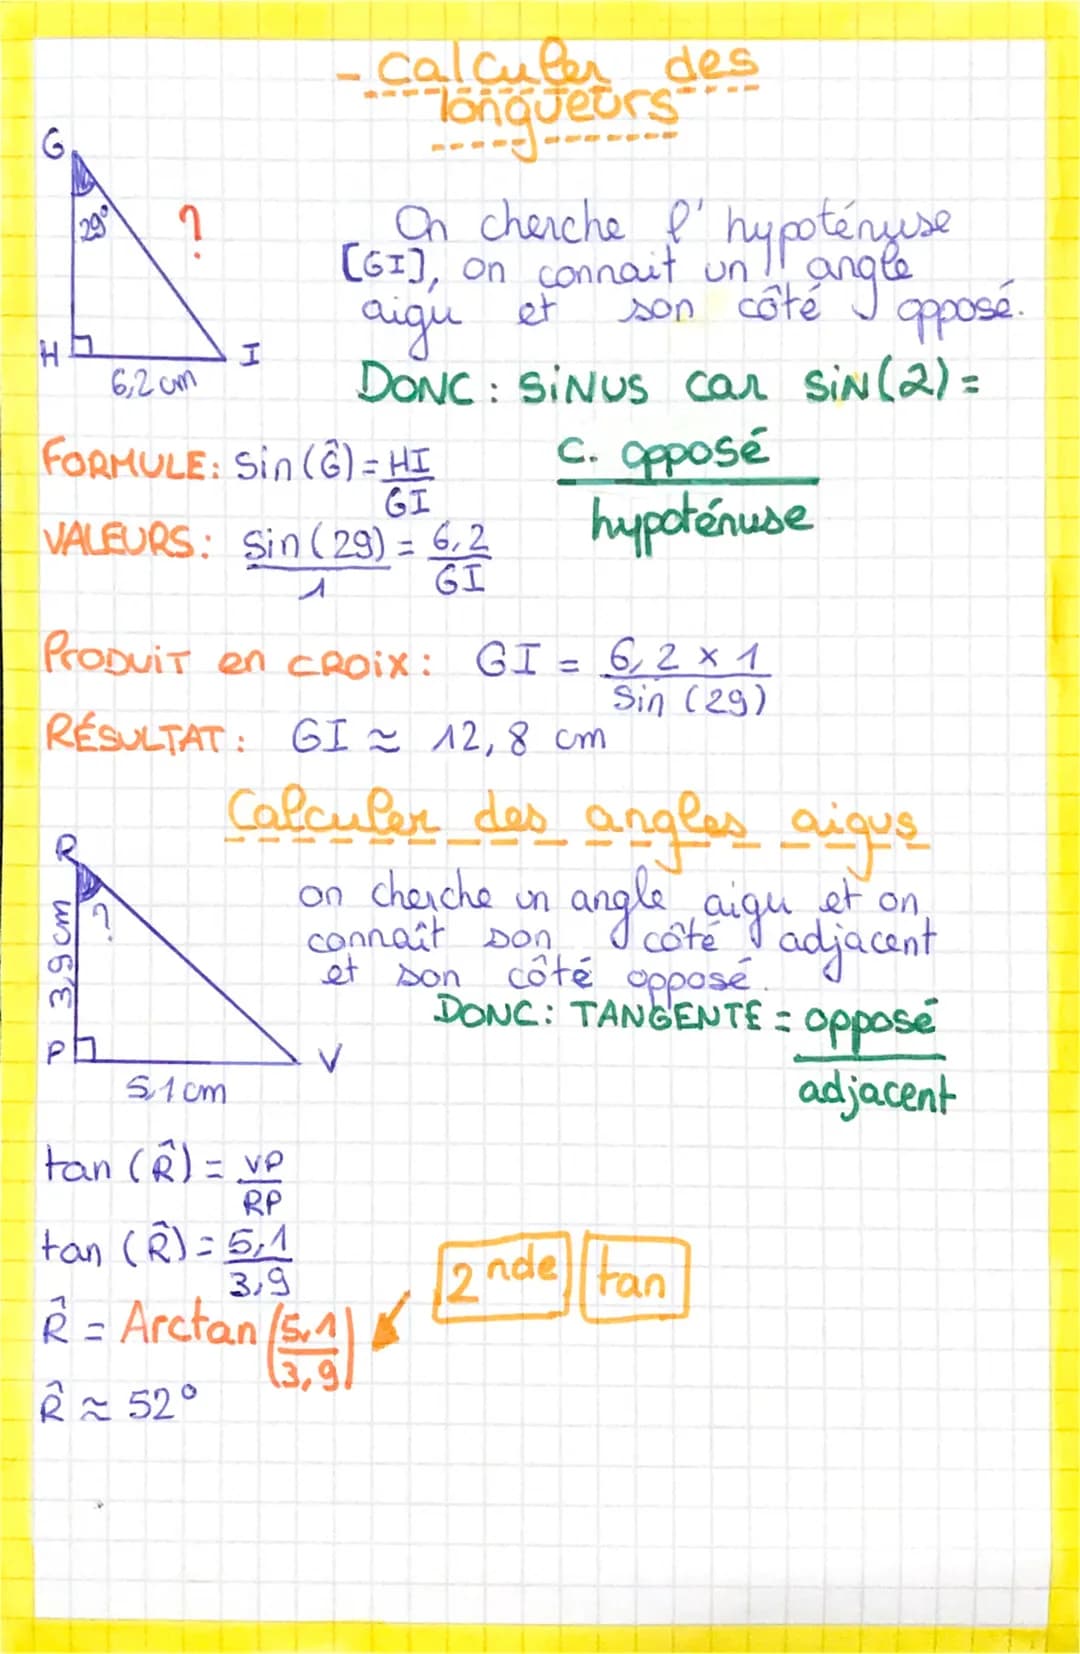 - Calculer des
longueurs
G
29°
?
H
I
6,2 cm
On cherche l'hypoténuse
[GI], on connait un angle
aigu et son côté opposé.
DONC : SINUS car SIN(2) =
c. opposé
hypoténuse
FORMULE: Sin(Ĝ) = HI
GI
VALEURS: Sin(29) = 6,2
1 GI
PRODUIT en CROIX: GI = 6,2 x 1
Sin (29)
RÉSULTAT: GI ≈ 12,8 cm
Calculer des angles aigus
R
?
3,9 cm
P
V
5,1 cm
on cherche un angle aigu et on
connaît son côté adjacent
et son côté opposé.
DONC: TANGENTE = opposé
adjacent
tan (R̂) = VP
RP
tan (R̂) = 5,1
3,9
2nde tan
R̂ = Arctan (5,1
3,9)
R̂ ≈ 52°